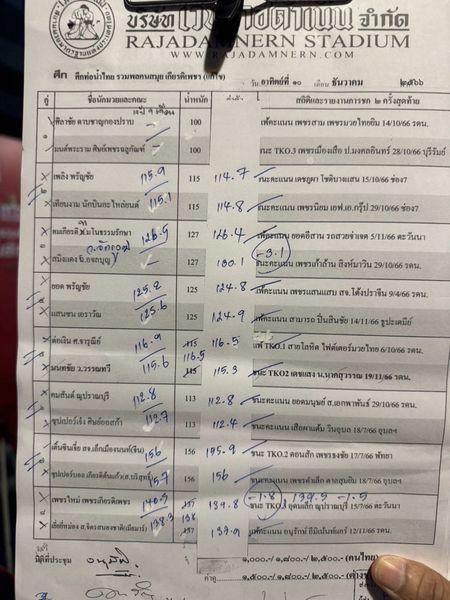 บริษัท เวทีราชดำเนิน จำกัด
RAJADAMNERN STADIUM
WWW.RAJADAMNERN.COM
ศึก ศึกท่อน้ำไทย รวมพลคนสมุย เกียรติเพชร (แก้ไข) วัน อาทิตย์ที่ ๑๐ เดือน ธันวาคม ๒๕๖๖
คู่ ชื่อนักมวยและคณะ น้ำหนัก สถิติและรายงานการชก ๒ ครั้งสุดท้าย
ศิลาชัย ดาบชาญกองปราบ 100 แพ้คะแนน เพชรสาม เพชรมวยไทยยิม 14/10/66 รดน.
มนต์พระราม ศิษย์เพชรจลูกัณฑ์ 100 ชนะ TKO.3 เพชรเมืองเสือ ป.มงคลอินทร์ 28/10/66 บุรีรัมย์
เพลิง พรัญชัย 115.9 115 114.7 ชนะคะแนน เดชภูผา โชติบางแสน 15/10/66 ช่อง7
เทียนงาม นักบินอะไหล่ยนต์ 115.1 115 114.8 ชนะคะแนน เพชรนิยม เอฟ.เอ.กรุ๊ป 29/10/66 ช่อง7
127 126.4 แพ้คะแนน ยอดอีสาน รถสวยจ่าเจต 5/11/66 ตะวันนา
-3.1
127 130.1 ชนะคะแนน เพชรเก้าล้าน สิงห์มาวิน 29/10/66 รดน.
ยอด พรัญชัย 125.2 125 124.8 แพ้คะแนน เพชรแสนแสบ สจ.โต้งปราจีน 9/4/66 รดน.
แสนชน เอราวัณ 125.6 125 124.9 แพ้คะแนน สามารถ ปิ่นสินชัย 14/11/66 ธูปะเตมีย์
ต่อเงิน ศ.จารุณีย์ 116.9 115 116.5 แพ้ TKO.1 สายโลหิต ไฟต์เตอร์มวยไทย 6/10/66 รดน.
116.5
มนทชัย ว.วรรณทวี 115.6 115 115.3 ชนะ TKO2 เดชแสง น.นาคสุวรรณ 19/11/66 รดน.
คมสันต์ ณุปราณบุรี 112.8 113 112.8 ชนะคะแนน ยอดมนุษย์ ส.เอกพาพันธ์ 29/10/66 รดน.
ซุปเปอร์เจ๋ง ศิษย์ยอสแก้ว 112.7 113 112.4 ชนะคะแนน เสือผาแค้ม วินอุบล 18/7/66 อุบลฯ
156 156 155.9 ชนะ TKO.2 คอนเส็ก เพชรธงชัย 17/7/66 พัทยา
157 156 156 ชนะคะแนน 18/7/66 อุบลฯ
-1.8 139.5 -1.5
เพชรใหม่ เพชรเกียรติเพชร 140.5 137 139.8 ชนะ TKO. อุดมเล็ก ณุปราณบุรี 15/7/66 ตะวันนา
138
138.3 137 137.9 แพ้คะแนน อนุรักษ์ อีมิเน้นท์แอร์ 12/11/66 รดน.
มติที่ประชุม อนุมัติ ๑,๐๐๐.-/๑,๘๐๐.-/๒,๕๐๐.- (คนไทย)
ค่าดู ๑,๕๐๐.-/๑,๘๐๐.-/๒,๕๐๐.-